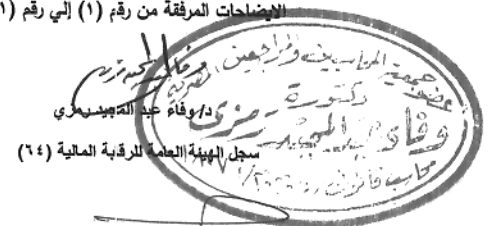 الايضاحات المرفقة من رقم (١) إلي رقم (١
د/ وفاء عبد المجيد رمزي
سجل الهيئة العامة للرقابة المالية (٦٤)
عضو جمعية المحاسبين والمراجعين المصرية
دكتورة
وفاء عبد المجيد رمزى
محاسب قانونى